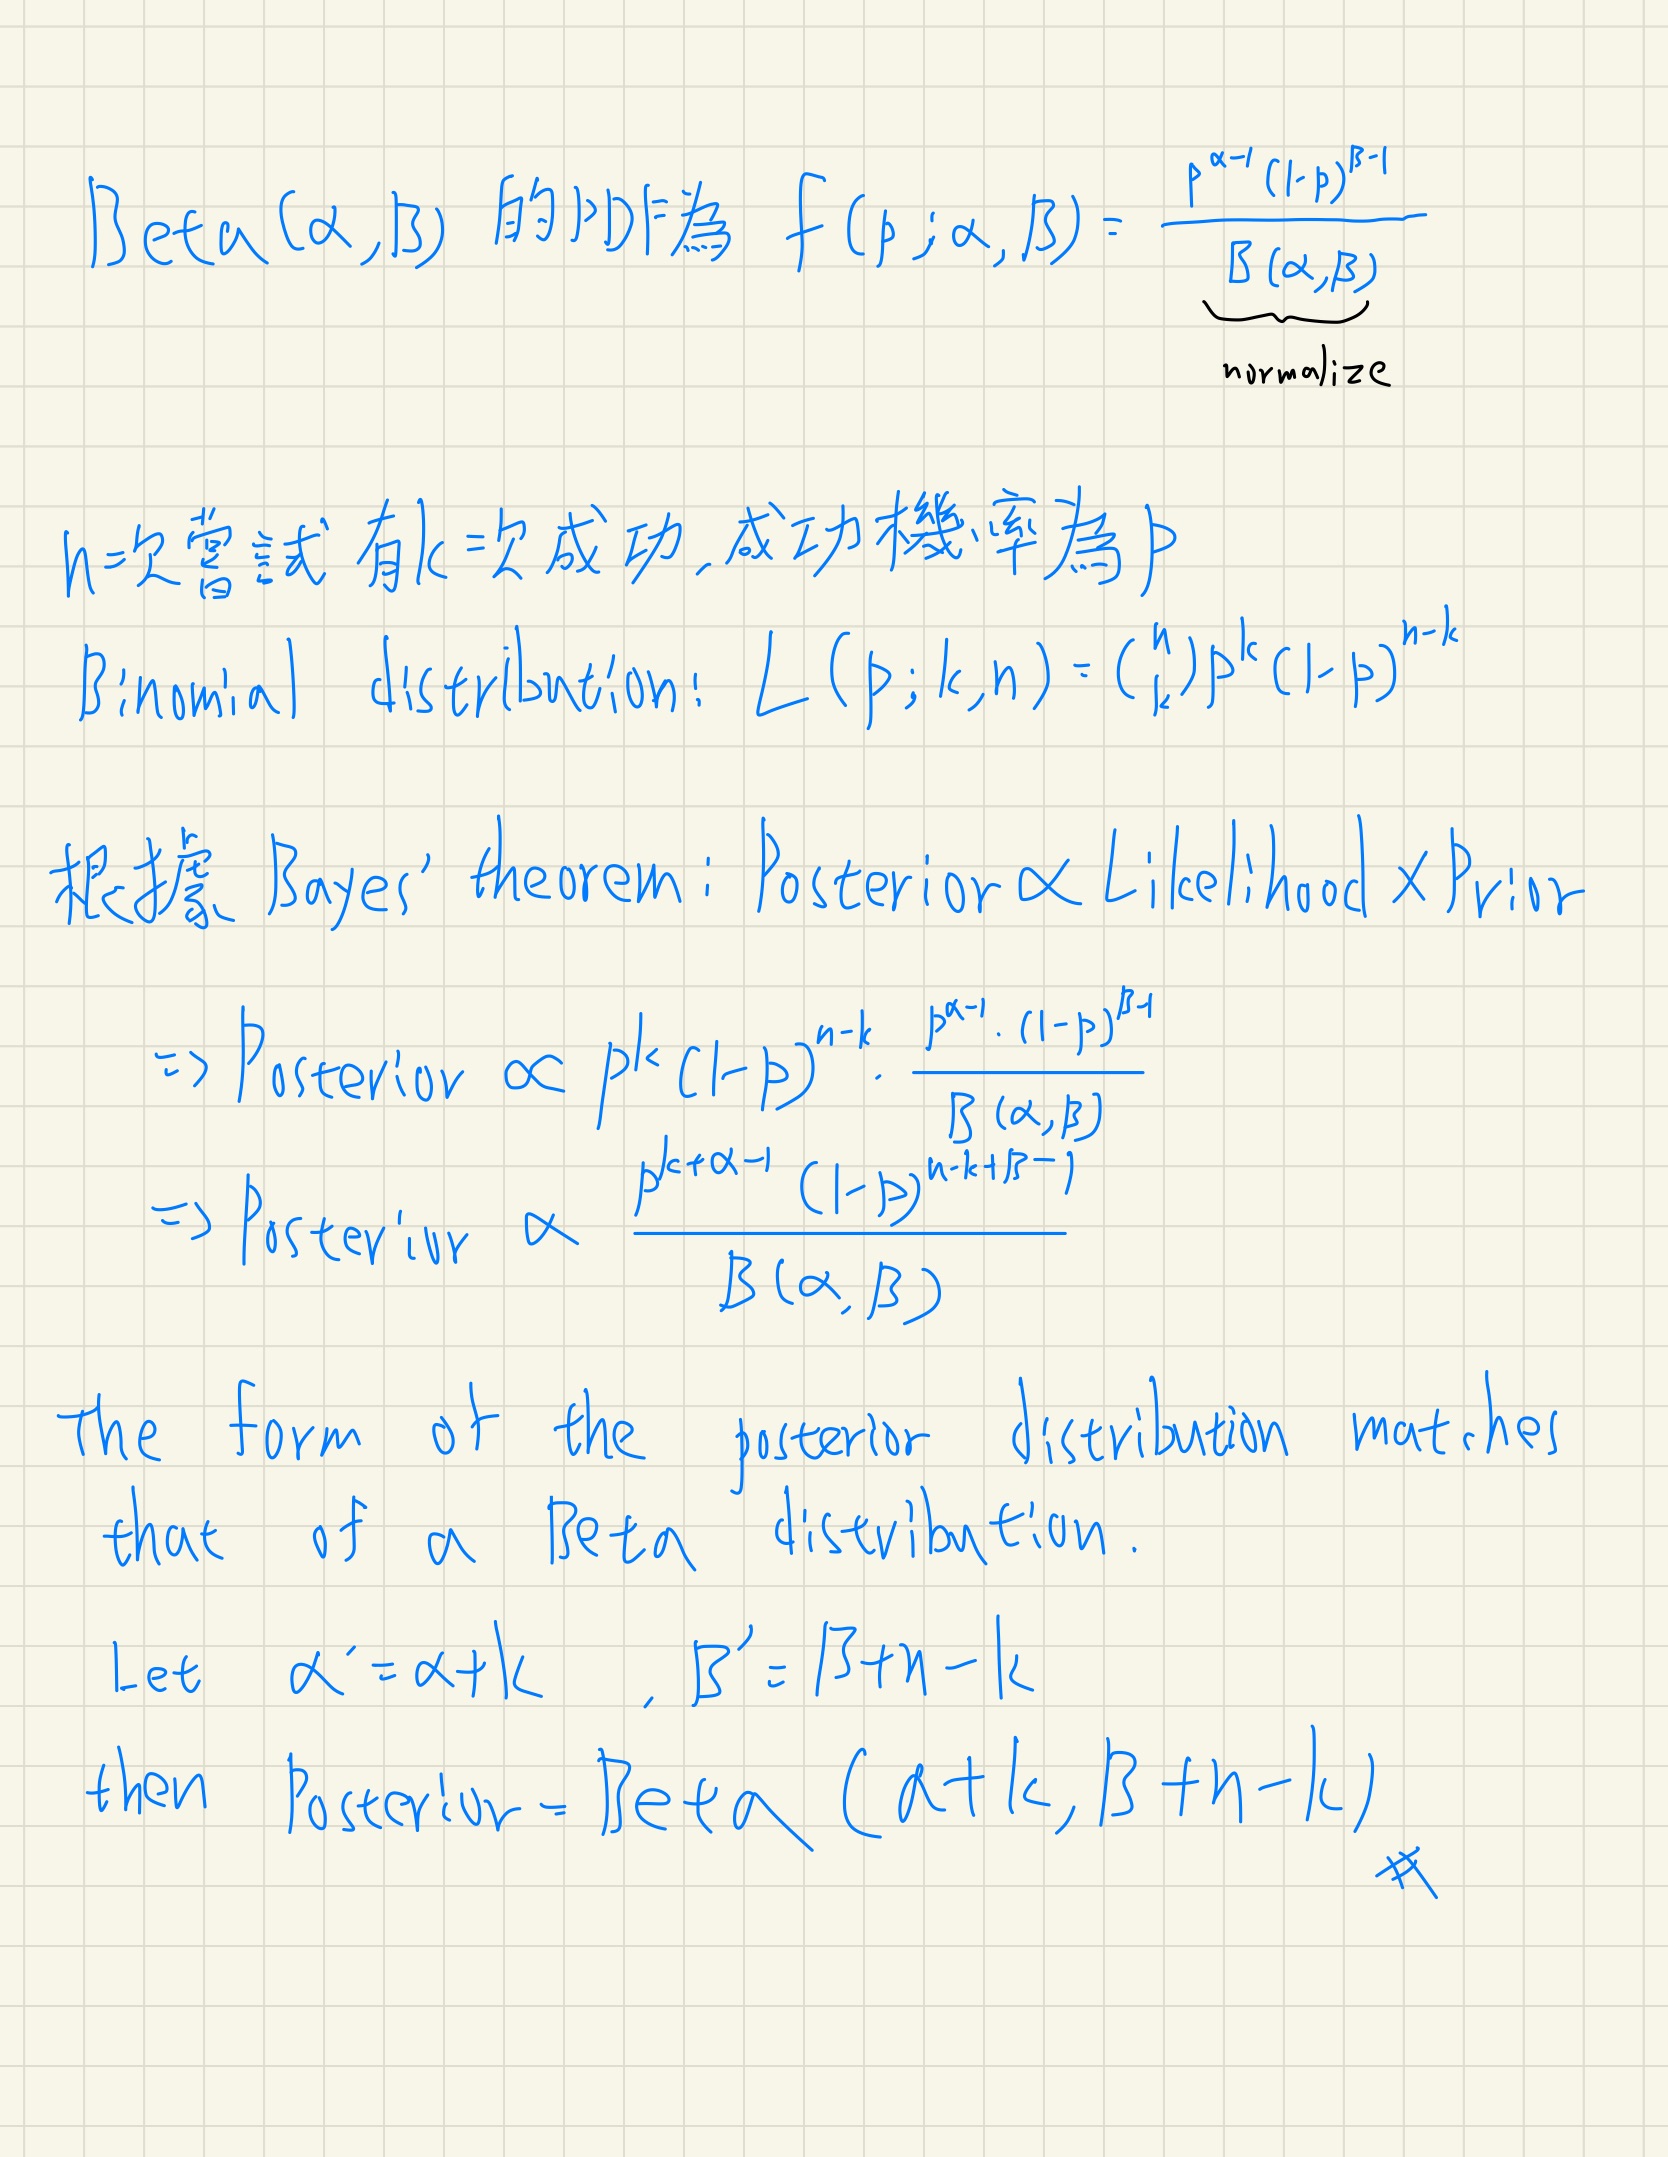 Beta(α,β) 的PDF為 f(p;α,β) = p^{α-1}(1-p)^{β-1} / B(α,β)
normalize
n次嘗試有k次成功,成功機率為p
Binomial distribution: L(p;k,n) = (n k) p^k (1-p)^{n-k}
根據 Bayes' theorem: Posterior ∝ Likelihood × Prior
=> Posterior ∝ p^k (1-p)^{n-k} · p^{α-1} · (1-p)^{β-1} / B(α,β)
=> Posterior ∝ p^{k+α-1} (1-p)^{n-k+β-1} / B(α,β)
The form of the posterior distribution matches
that of a Beta distribution.
Let α' = α+k , β' = β+n-k
then Posterior = Beta (α+k, β+n-k) #